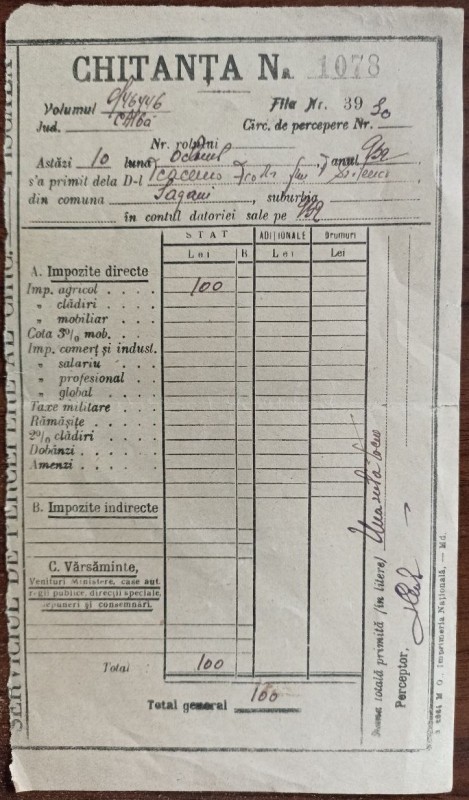 CHITANȚA Nr. 1078
Volumul 9/46446 Fila Nr. 39 30
Jud. Alba Circ. de percepere Nr.
Nr. rolului
Astăzi 10 luna , anul 932
s'a primit dela D-l
din comuna , suburbia
în contul datoriei sale pe 932
STAT ADIȚIONALE Drumuri
Lei B. Lei Lei
A. Impozite directe
Imp. agricol . . . . 100
„ clădiri . . . .
„ mobiliar . . .
Cota 3% mob. . . .
Imp. comerț și indust.
„ salariu . . . .
„ profesional . .
„ global . . . .
Taxe militare . . .
Rămășițe . . . . .
2% clădiri . . . .
Dobânzi . . . . .
Amenzi . . . . .
B. Impozite indirecte
C. Vărsăminte,
Venituri Ministere, case aut.
regii publice, direcții speciale,
depuneri și consemnări.
Total 100
Total general 100
Suma totală primită (în litere) Una sută
Perceptor,
M. O. Imprimeria Națională, — Md.
SERVICIUL DE PERCEPERE AL CIRC. FISCALĂ